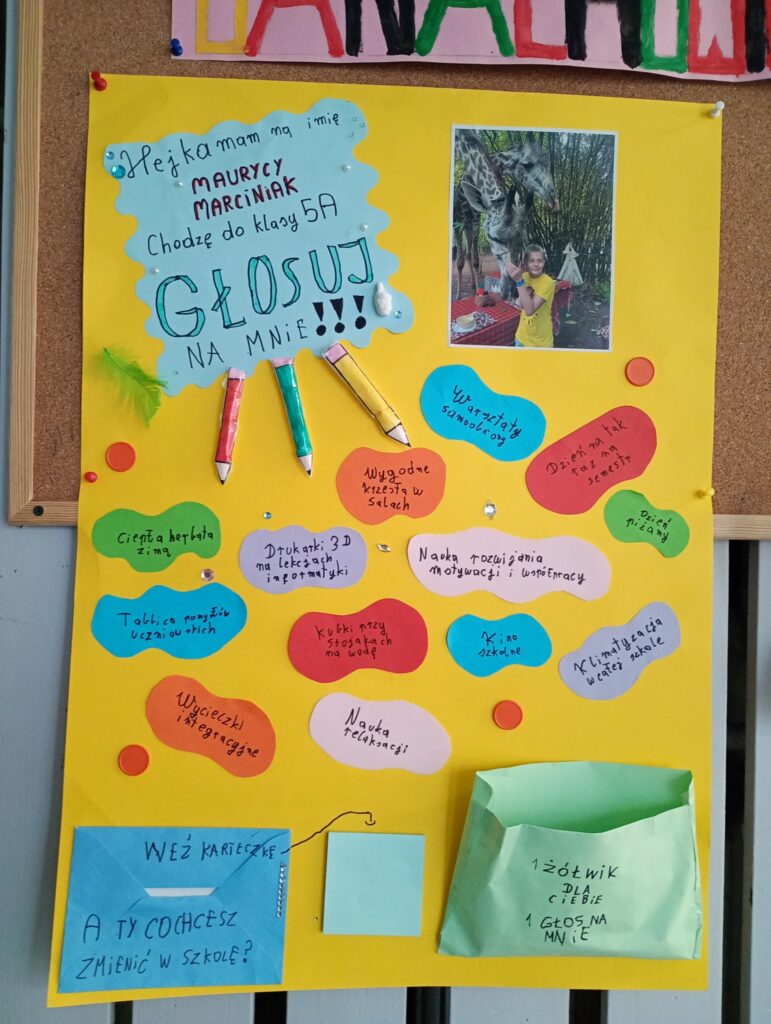 Hejka mam na imię
MAURYCY
MARCINIAK
Chodzę do klasy 5A
GŁOSUJ
NA MNIE!!!
Warsztaty
samoobrony
Dzień na tak
raz na
semestr
Wygodne
krzesła w
salach
Dzień
piżamy
Ciepła herbata
zimą
Drukarki 3D
na lekcjach
informatyki
Nauka rozwijania
motywacji i współpracy
Tablica pomysłów
uczniowskich
Kubki przy
stojakach
na wodę
Kino
szkolne
Klimatyzacja
w całej szkole
Wycieczki
integracyjne
Nauka
relaksacji
WEŹ KARTECZKĘ
A TY CO CHCESZ
ZMIENIĆ W SZKOLE?
1 ŻÓŁWIK
DLA
CIEBIE
1 GŁOS NA
MNIE